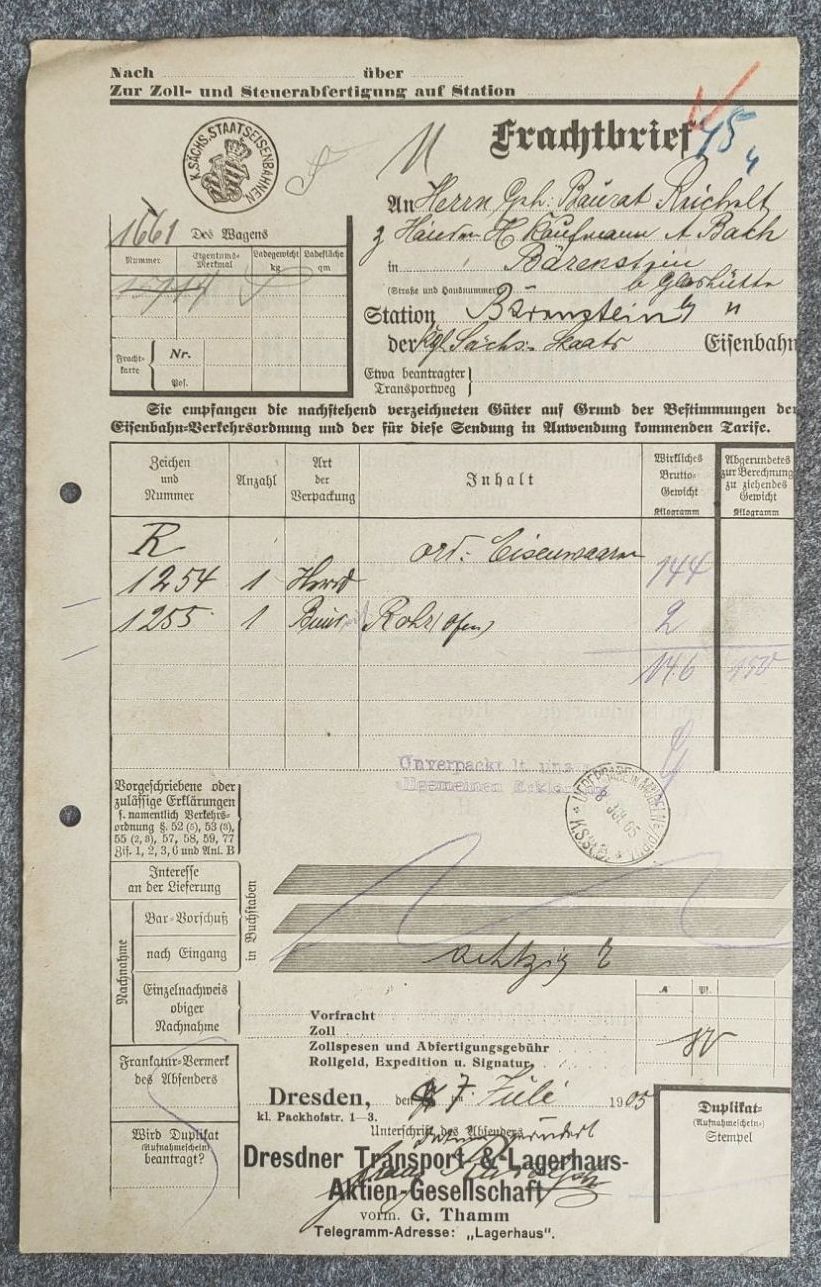 Nach über
Zur Zoll- und Steuerabfertigung auf Station
K.SÄCHS.STAATSEISENBAHNEN
Frachtbrief
75
An Herrn Gph: Baurat Reichelt
z Händen H Kaufmann A Bach
1661 Des Wagens
in Bärenstein
(Straße und Hausnummer) b Glashütte
Nummer Eigentums-Merkmal Ladegewicht kg Ladefläche qm
Station Bärenstein "
der Kgl Sächs: Staats Eisenbahn
Fracht-karte Nr.
Pos.
Etwa beantragter Transportweg
Sie empfangen die nachstehend verzeichneten Güter auf Grund der Bestimmungen der
Eisenbahn-Verkehrsordnung und der für diese Sendung in Anwendung kommenden Tarife.
Zeichen und Nummer Anzahl Art der Verpackung Inhalt Wirkliches Brutto-Gewicht Kilogramm Abgerundetes zur Berechnung zu ziehendes Gewicht Kilogramm
R ord: Eisenwaaren
1254 1 Herd 144
1255 1 Rohr (Ofen) 2
146 150
Unverpackt lt. uns.
Allgemeinen Erklärung
Vorgeschriebene oder
zulässige Erklärungen
s. namentlich Verkehrs-
ordnung §. 52 (5), 53 (3),
55 (2, 3), 57, 58, 59, 77
Zif. 1, 2, 3, 6 und Anl. B
8 JUL 05
K.S.STS.E.
Interesse
an der Lieferung
in Buchstaben
Nachnahme
Bar-Vorschuß
nach Eingang achtzig
Einzelnachweis
obiger
Nachnahme
M Pf.
Vorfracht
Zoll
Zollspesen und Abfertigungsgebühr 80
Rollgeld, Expedition u. Signatur
Frankatur-Vermerk
des Absenders
Dresden, den 7. Juli 1905
kl. Packhofstr. 1—3.
Duplikat-
(Aufnahmeschein-)
Stempel
Unterschrift des Absenders
Wird Duplikat
(Aufnahmeschein)
beantragt?
Dresdner Transport & Lagerhaus-
Aktien-Gesellschaft
vorm. G. Thamm
Telegramm-Adresse: „Lagerhaus".